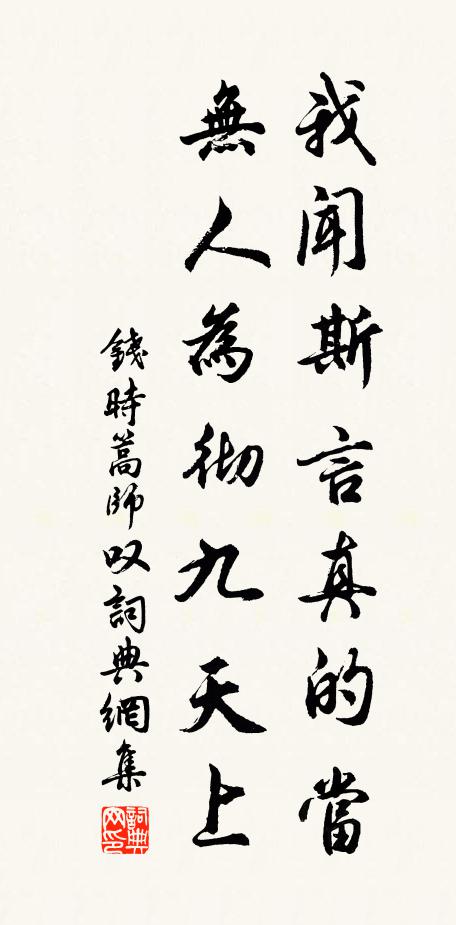 我聞斯言真的當
無人為彻九天上
錢時蒿師叹詞典網集
詞典网印